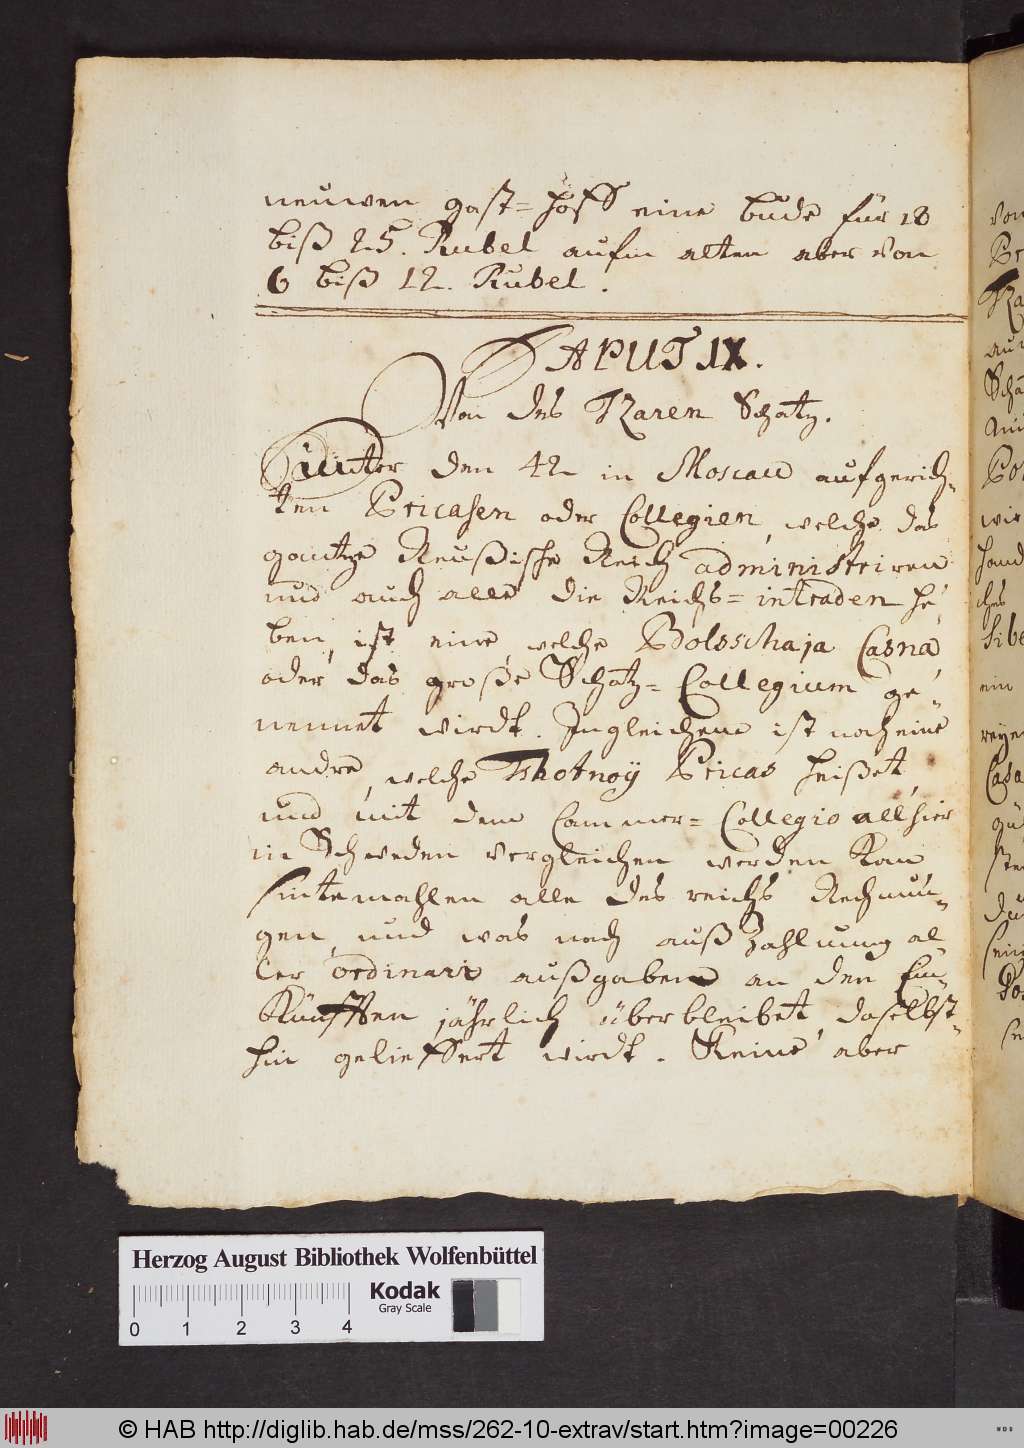 neuwen gast=hoff eine bude für 18
biß 25. Rubel aufm alten aber von
6 biß 12. Rubel.
CAPUT IX.
Von des Tzaren Schatz.
Unter den 42 in Moscau aufgerich-
ten Pricasen oder Collegien, welche das
gantze Reußische Reich administriren
und auch alle die Reichs=intraden he-
ben, ist eine, welche Bolsschaja Casna
oder das große Schatz=Collegium ge-
nennet wirdt. Ingleichen ist noch eine
andre, welche Tshotnoÿ Pricas heißet,
und mit dem Cammer=Collegio allhier
in Schweden vergleichen werden kan
sintemahlen alle des reichs Rechnun-
gen, und was nach auß Zahlung al-
ler ordinari außgaben an den Ein-
künfften jährlich überbleibet, daselbst-
hin gelieffert wirdt. Keine aber
von
Tza
auf
Scha
wir
hand
ches
Sibe
ein
reyen
Casa
sein
Herzog August Bibliothek Wolfenbüttel
Kodak
Gray Scale
0 1 2 3 4
© HAB http://diglib.hab.de/mss/262-10-extrav/start.htm?image=00226